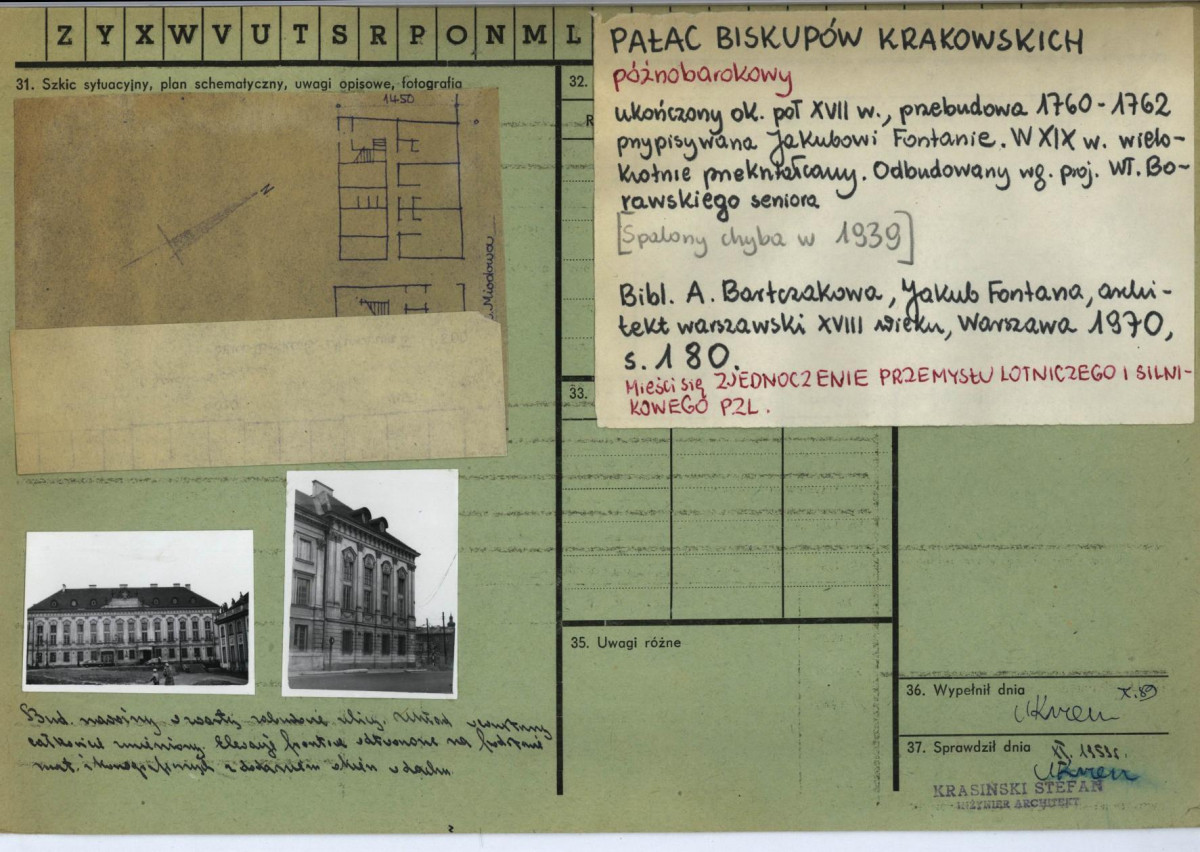 Z Y X W V U T S R P O N M L
31. Szkic sytuacyjny, plan schematyczny, uwagi opisowe, fotografia
1450
N
Miodowa
32.
R
PAŁAC BISKUPÓW KRAKOWSKICH
późnobarokowy
ukończony ok. poł XVII w., przebudowa 1760-1762
przypisywana Jakubowi Fontanie. W XIX w. wielo-
krotnie przekształcany. Odbudowany wg. proj. Wł. Bo-
rawskiego seniora
[Spalony chyba w 1939]
Bibl. A. Bartczakowa, Jakub Fontana, archi-
tekt warszawski XVIII wieku, Warszawa 1970,
s. 180.
Mieści się ZJEDNOCZENIE PRZEMYSŁU LOTNICZEGO I SILNI-
KOWEGO PZL.
33.
Bud. narożny w zwartej zabudowie ulicy. Układ
całkowicie zmieniony. Elewacje frontowe odtworzone na podstawie
mat. ikonograficznych z dodaniem okien w dachu
35. Uwagi różne
36. Wypełnił dnia
X.59
37. Sprawdził dnia
XI. 1959r.
KRASIŃSKI STEFAN
INŻYNIER ARCHITEKT